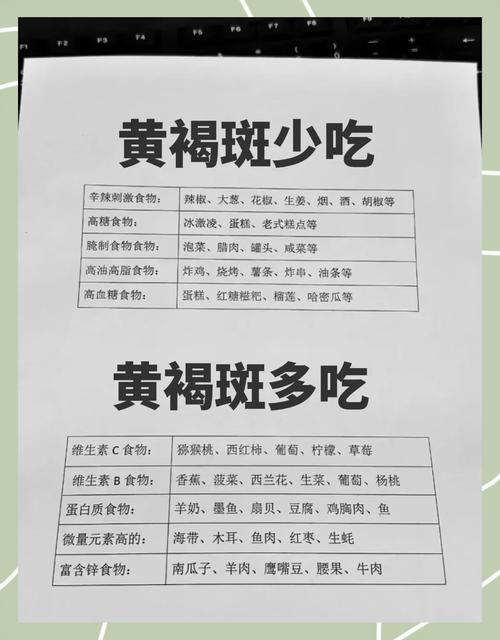 F1 F2 F3 F4 F5 F6 F7 F8 F9
黄褐斑少吃
辛辣刺激食物: 辣椒、大葱、花椒、生姜、烟、酒、胡椒等
高糖食物: 冰激凌、蛋糕、老式糕点等
腌制食物食物: 泡菜、腊肉、罐头、咸菜等
高油高脂食物: 炸鸡、烧烤、薯条、炸串、油条等
高血糖食物: 蛋糕、红糖糍粑、榴莲、哈密瓜等
黄褐斑多吃
维生素 C 食物: 猕猴桃、西红柿、葡萄、柠檬、草莓
维生素 B 食物: 香蕉、菠菜、西兰花、生菜、葡萄、杨桃
蛋白质食物: 羊奶、墨鱼、扇贝、豆腐、鸡胸肉、鱼
微量元素高的: 海带、木耳、鱼肉、红枣、生蚝
富含锌食物: 南瓜子、羊肉、鹰嘴豆、腰果、牛肉